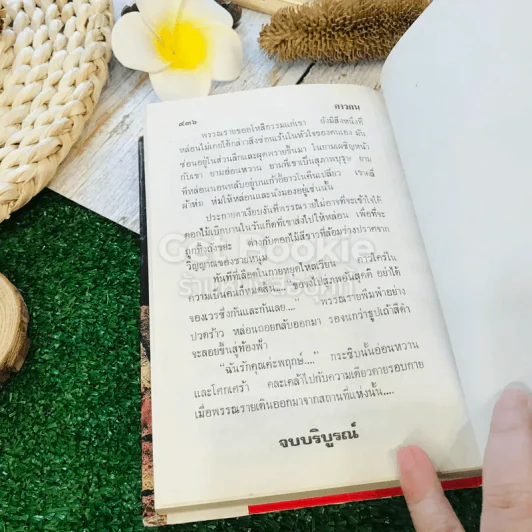 ๔๓๖ ดาวตน
พรรณรายขออโหสิกรรมแก่เขา ยังมีสิ่งหนึ่งที่
หล่อนไม่เคยได้กล่าวสิ่งซ่อนเร้นในหัวใจของตนเอง มัน
ซ่อนอยู่ในส่วนลึกและผุดพรายขึ้นมา ในยามเผชิญหน้า
กับเขา ยามอ่อนหวาน ยามที่เขาเป็นสุภาพบุรุษ ยาม
ที่หล่อนนอนหลับอยู่บนเก้าอี้ยาวในคืนเปลี่ยว เขาคลี่
ผ้าห่ม ห่มให้หล่อนและนั่งมองอยู่เช่นนั้น
ประกายตาเงียบงันที่พรรณรายไม่อาจที่จะเข้าใจได้
ดอกไม้เบิกบานในวันเกิดที่เขาส่งไปให้หล่อน เพื่อที่จะ
ถูกทิ้งลงขยะ ต่างกับดอกไม้สีขาวที่ล้อมร่างปราศจาก
วิญญาณของชายหนุ่ม
ทันทีที่เลือดในกายหยุดไหลเวียน
ความเป็นคนก็หมดสิ้น.... อย่าได้
ของเวรซึ่งกันและกันเลย...." พรรณรายพึมพำอย่าง
ปวดร้าว หล่อนถอยกลับออกมา รอจนกว่าธูปเถ้าสีดำ
จะลอยขึ้นสู่ท้องฟ้า
"ฉันรักคุณค่ะพฤกษ์...." กระซิบนั้นอ่อนหวาน
และโศกเศร้า คละเคล้าไปกับความเดียวดายรอบกาย
เมื่อพรรณรายเดินออกมาจากสถานที่แห่งนั้น....
จบบริบูรณ์
Got Rookie